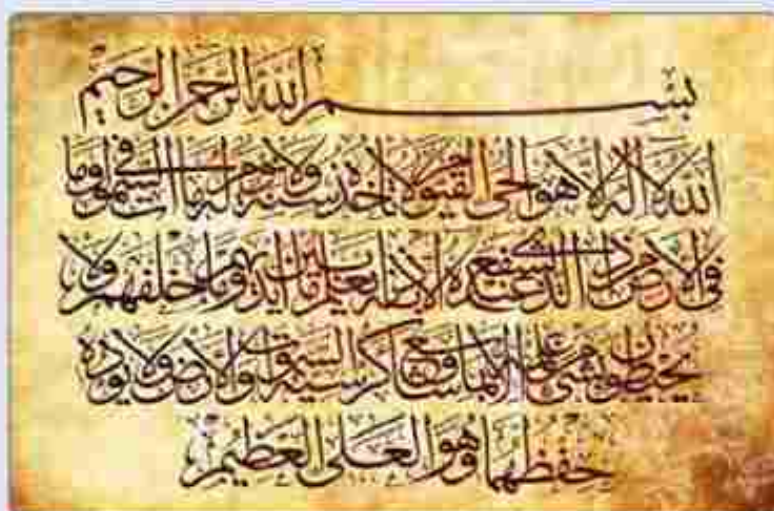 بسم الله الرحمن الرحيم
الله لا اله الا هو الحي القيوم لا تاخذه سنة ولا نوم له ما في السموات وما
في الارض من ذا الذي يشفع عنده الا باذنه يعلم ما بين ايديهم وما خلفهم ولا
يحيطون بشيء من علمه الا بما شاء وسع كرسيه السموات والارض ولا يؤده
حفظهما وهو العلي العظيم